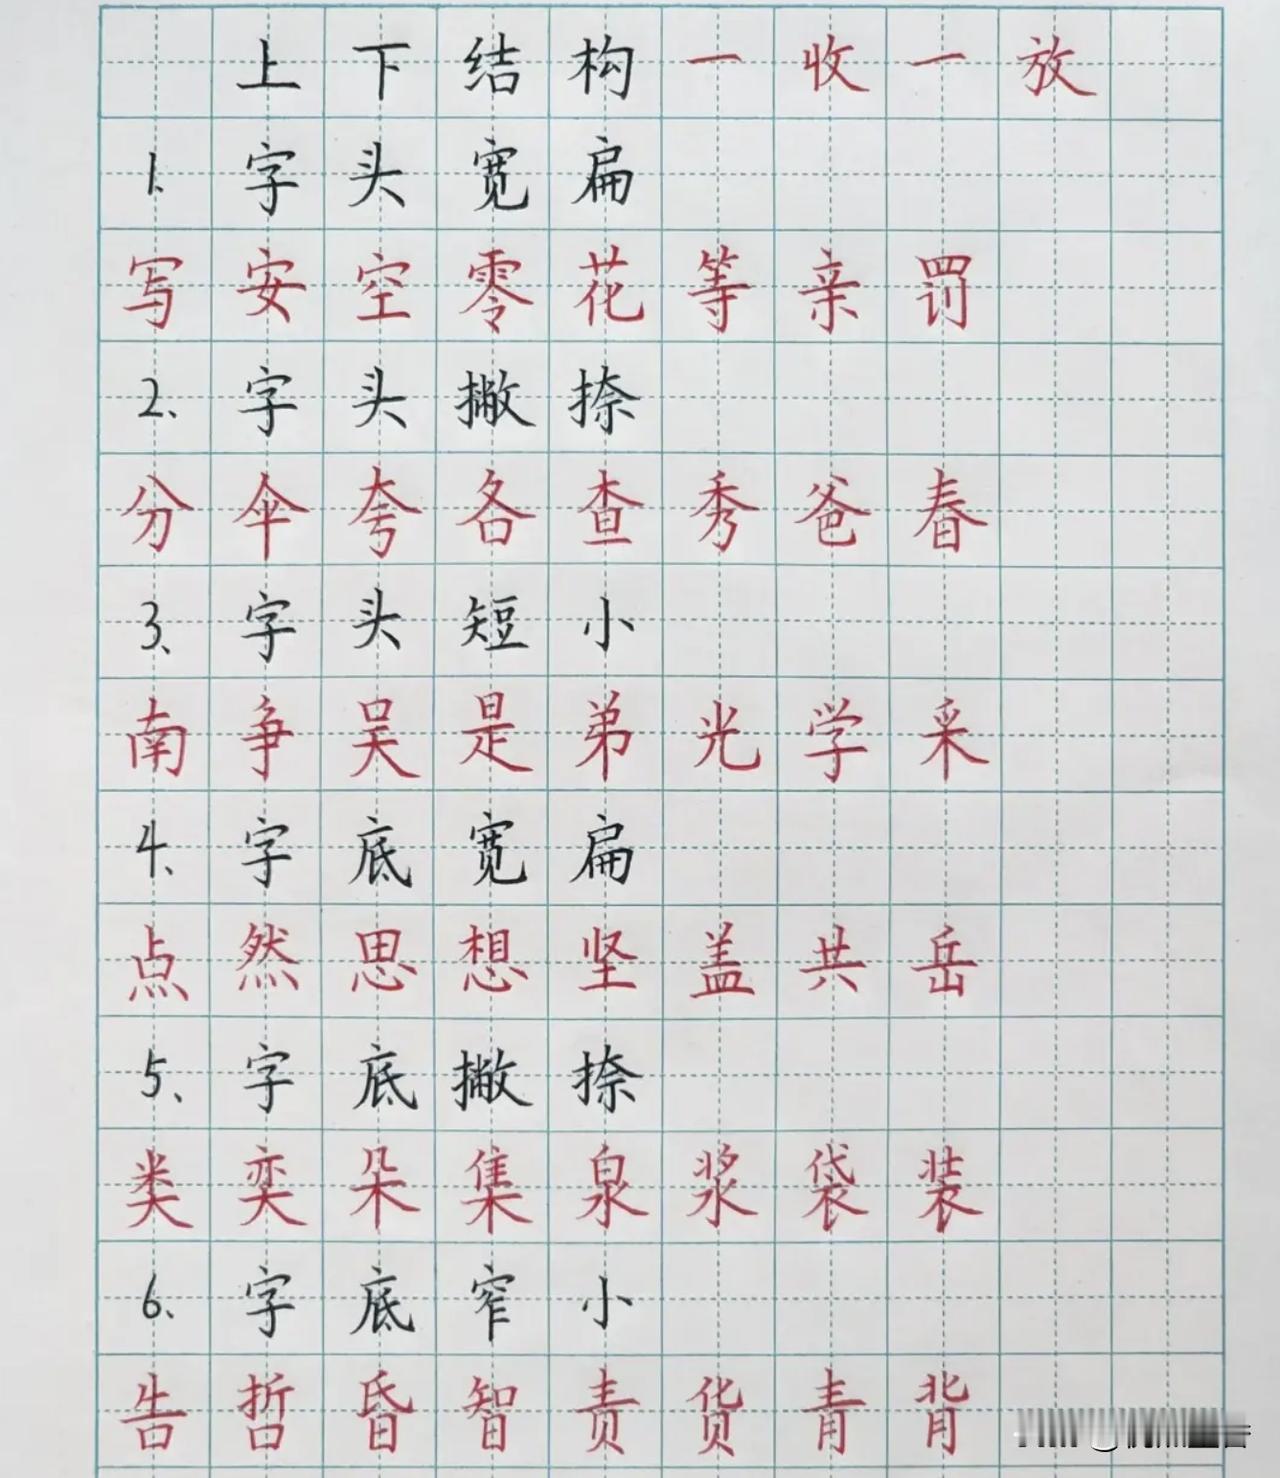 上下结构一收一放
1.字头宽扁
写安空零花等亲罚
2、字头撇捺
分伞夸各查秀爸春
3、字头短小
南争吴是弟光学采
4、字底宽扁
点然思想坚盖共岳
5、字底撇捺
类奕朵集泉浆袋装
6、字底窄小
告哲昏智责货青背